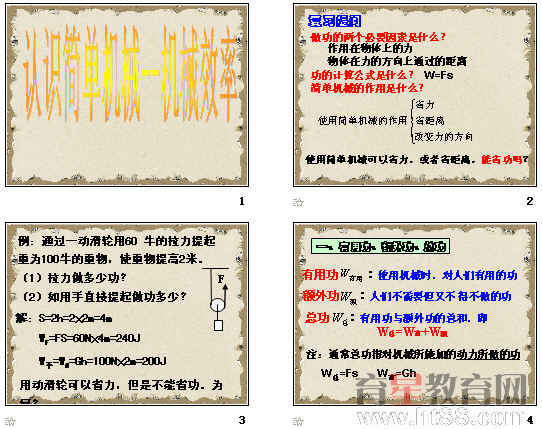 认识简单机械—机械效率
1
做功的两个必要因素是什么?
作用在物体上的力
物体在力的方向上通过的距离
功的计算公式是什么? W=Fs
简单机械的作用是什么?
省力
使用简单机械的作用 省距离
改变力的方向
使用简单机械可以省力，或者省距离，能省功吗?
2
例: 通过一动滑轮用60 牛的拉力提起
重为100牛的重物，使重物提高2米。
(1) 拉力做多少功?
(2) 如用手直接提起做功多少?
F
解: S=2h=2×2m=4m
WF=FS=60N×4m=240J
W手=WG=Gh=100N×2m=200J
用动滑轮可以省力，但是不能省功。为
3
有用功W有用: 使用机械时，对人们有用的功
额外功W额: 人们不需要但又不得不做的功
总功W总: 有用功与额外功的总和，即
W总=W有+W额
注: 通常总功指对机械所施加的动力所做的功
W总=Fs W有=Gh
育星教育网
www.ht88.com
4